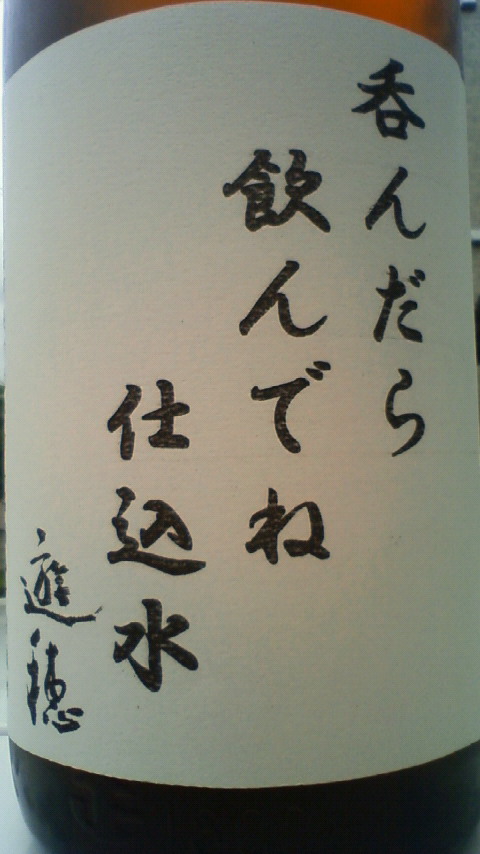 呑んだら
飲んでね
仕込水
遊穂